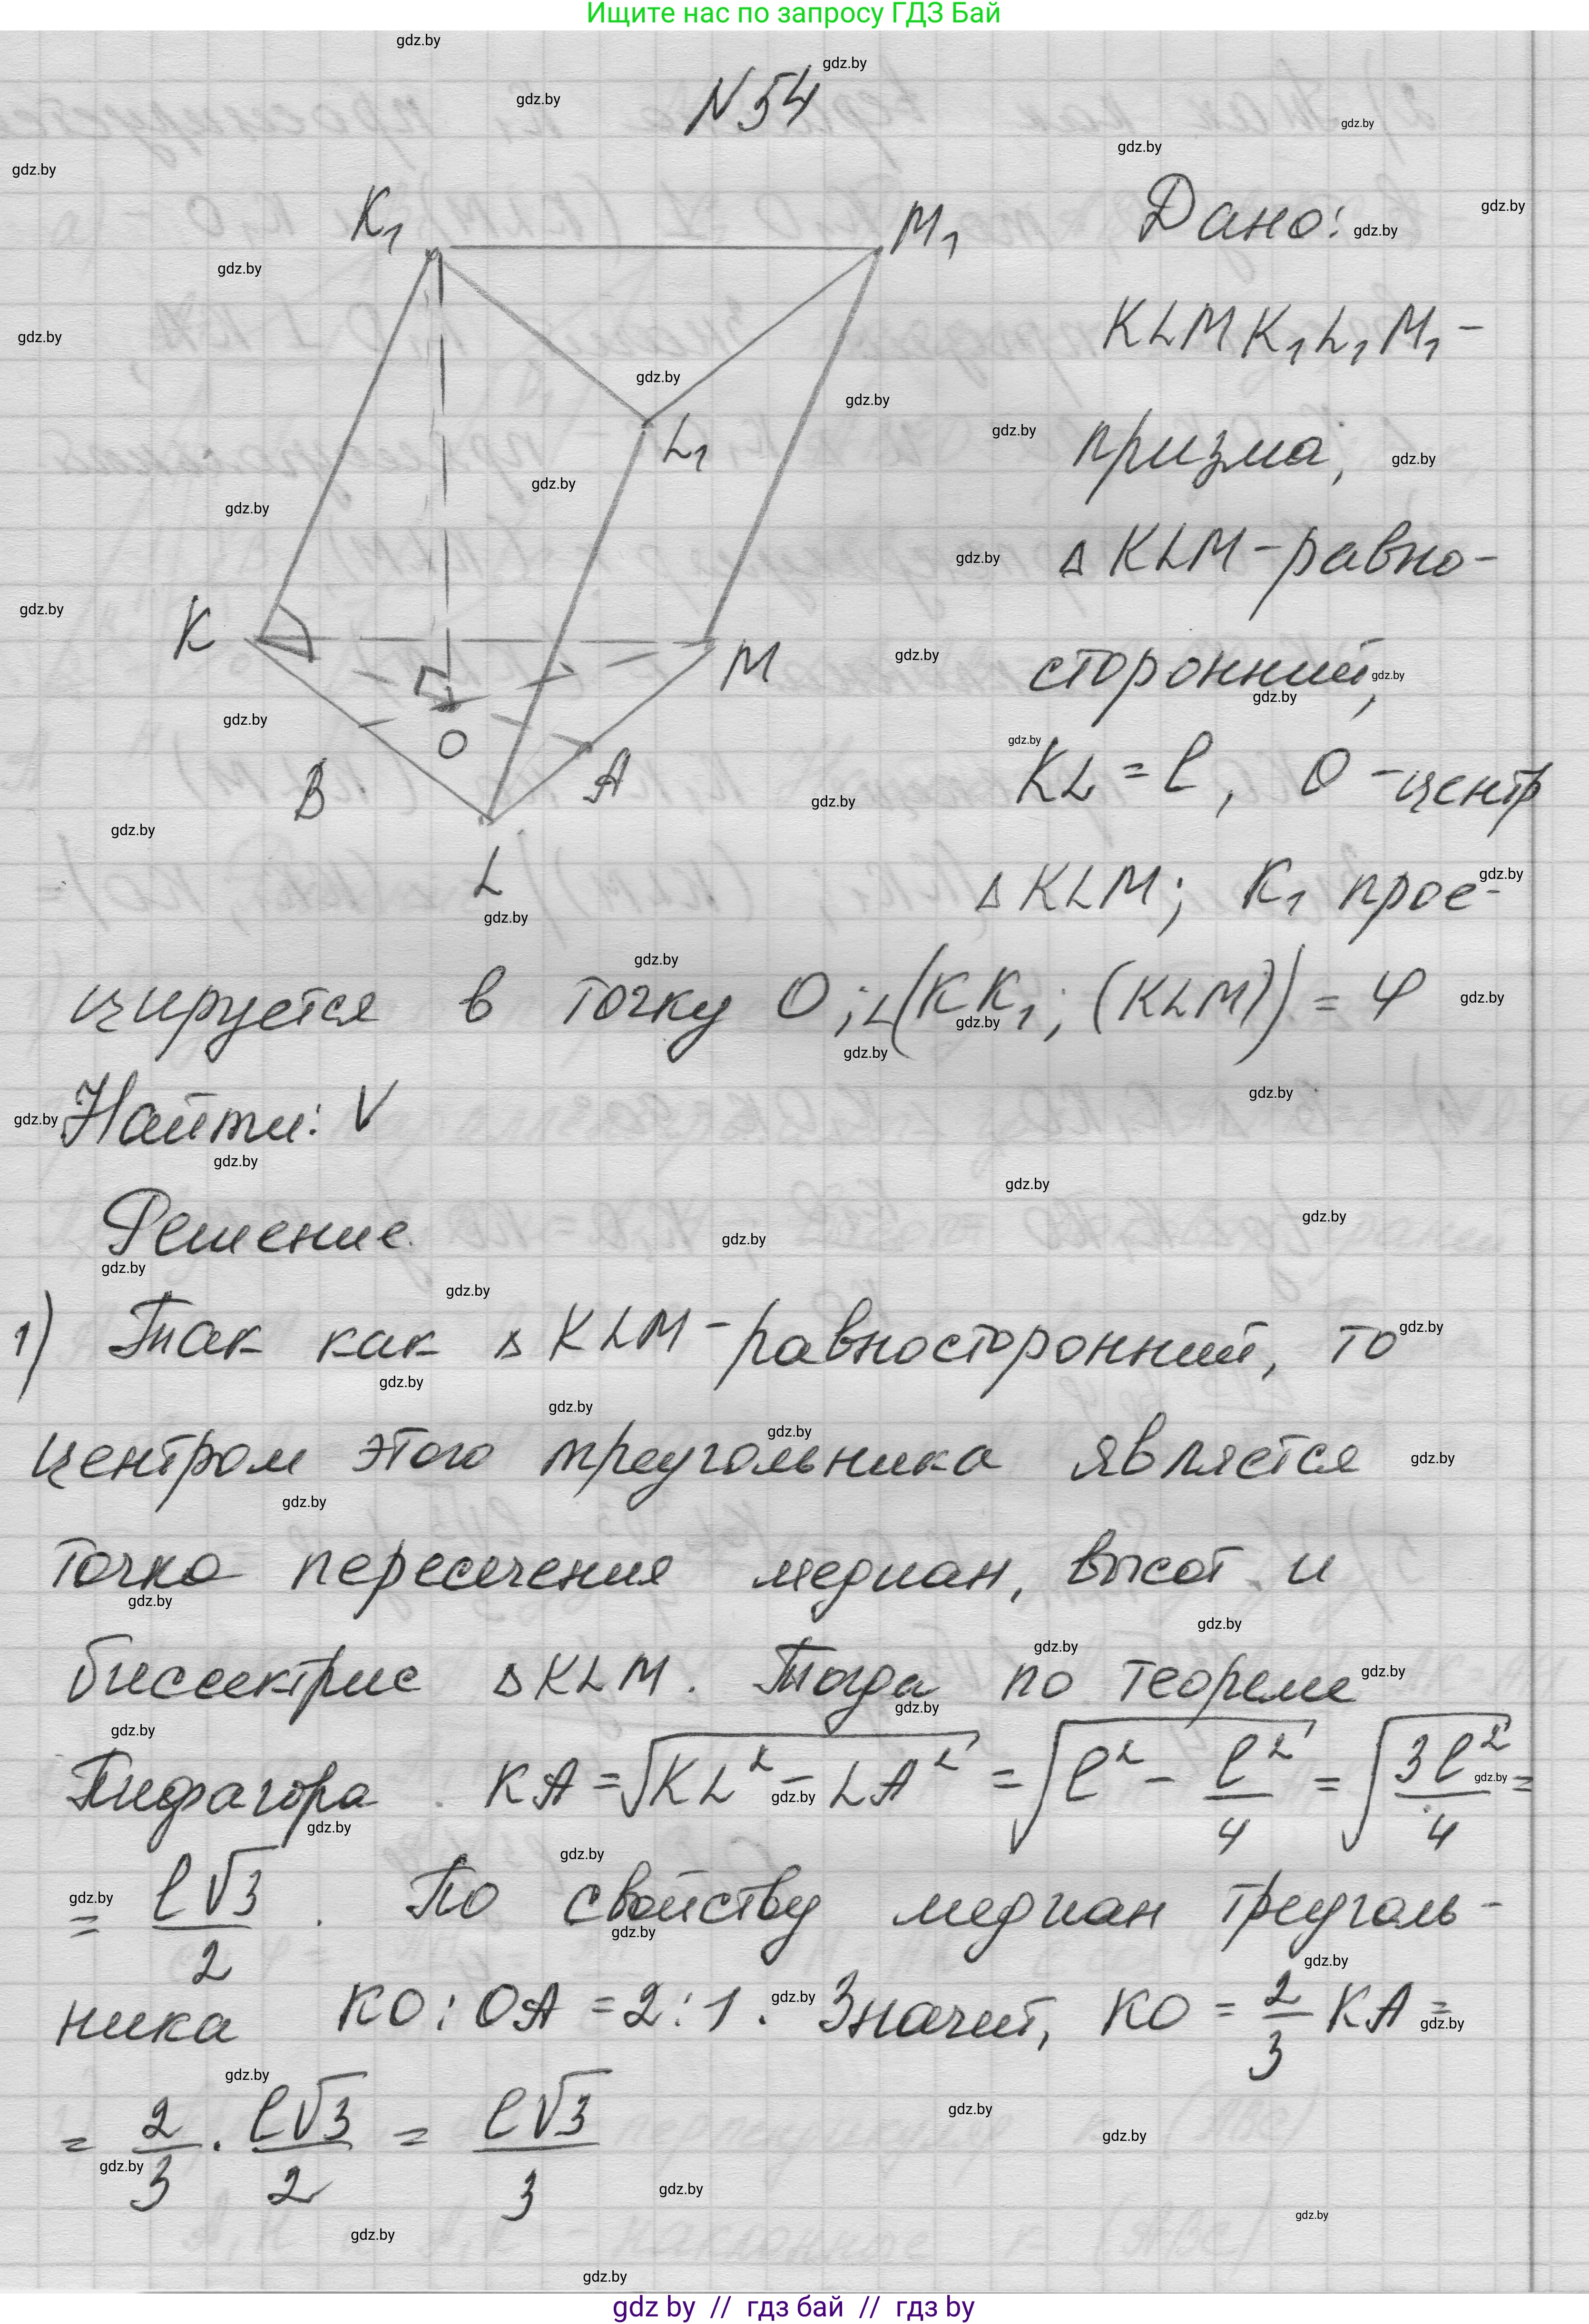 Ищите нас по запросу ГДЗ Бай
N54
K₁
M₁
L₁
K
M
O
B
A
L
Дано:
KLMK₁L₁M₁ -
призма,
△KLM - равно-
сторонний,
KL = l, O - центр
△KLM; K₁ прое-
цируется в точку O; ∠(KK₁; (KLM)) = φ
Найти: V
Решение.
1) Так как △KLM - равносторонний, то
центром этого треугольника является
точка пересечения медиан, высот и
биссектрис △KLM. Тогда по теореме
Пифагора KA = √(KL² - LA²) = √(l² - l²/4) = √(3l²/4) =
= l√3/2. По свойству медиан треуголь-
ника KO : OA = 2 : 1. Значит, KO = 2/3 KA =
= 2/3 · l√3/2 = l√3/3
gdz by // гдз бай // гдз by